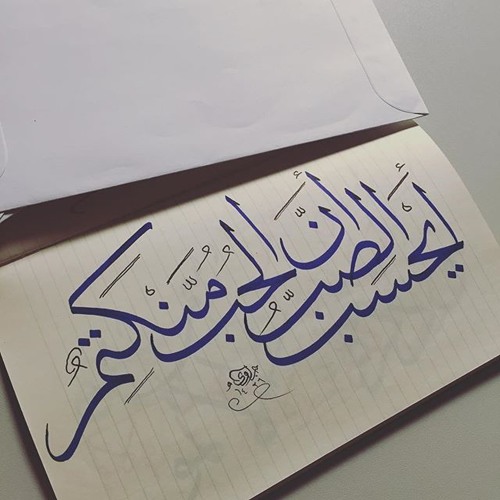 أيحسب الصب أنّ الحبّ منكتم